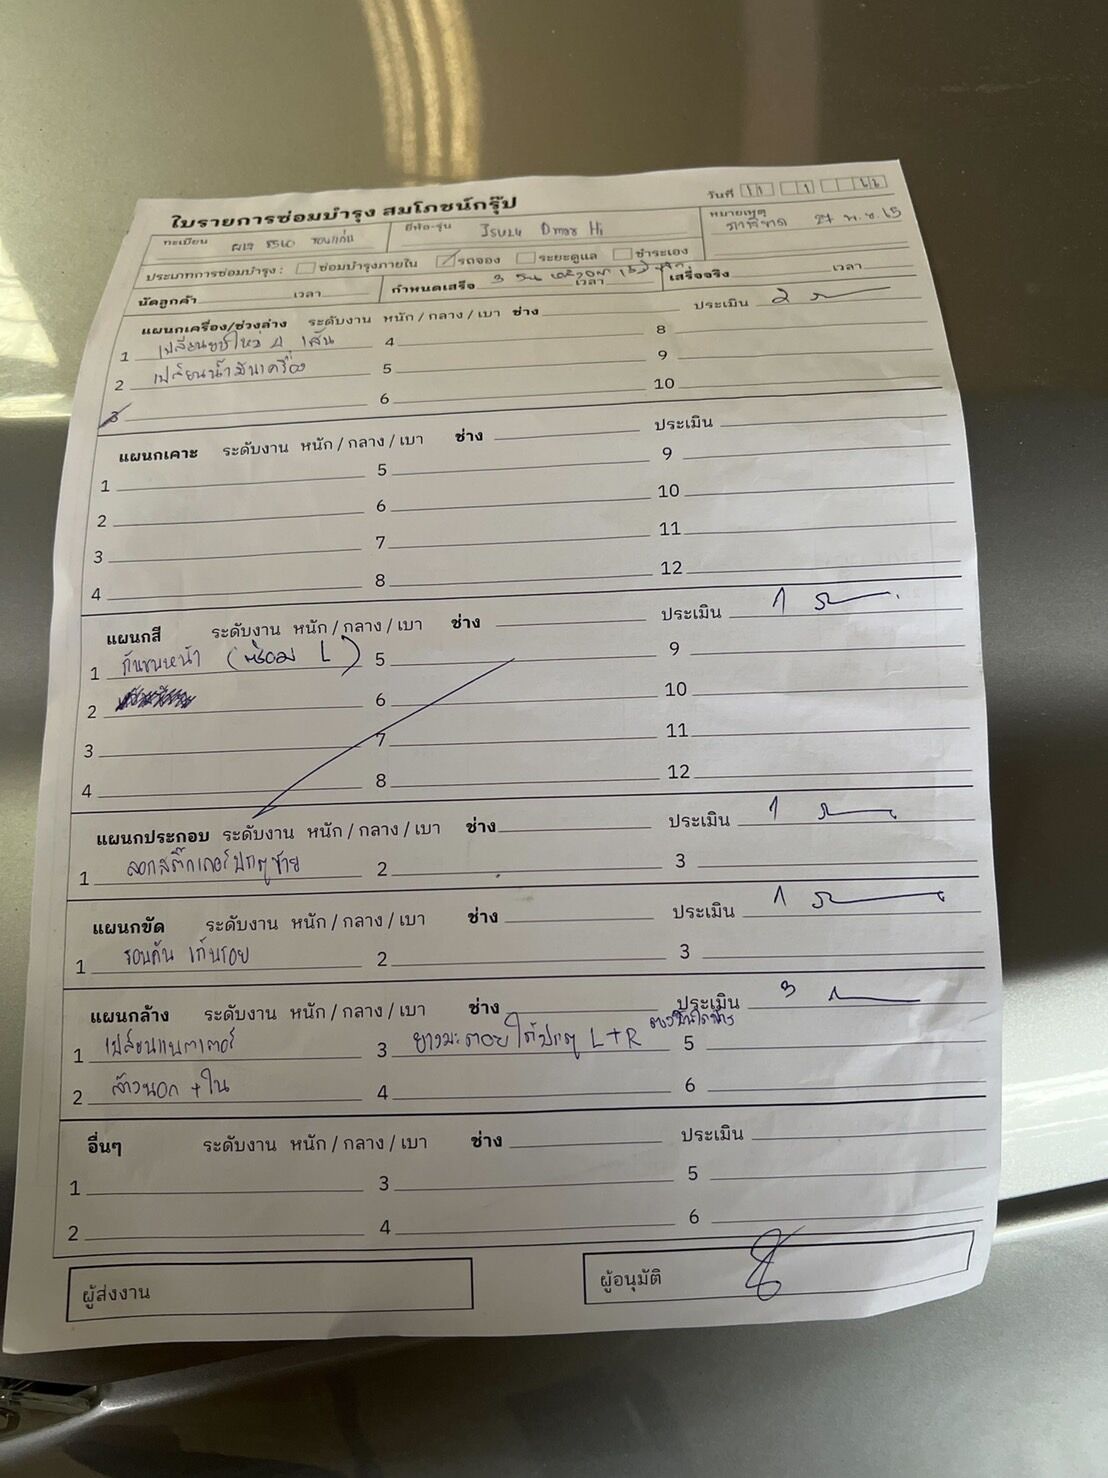 ใบรายการซ่อมบำรุง สมโภชน์กรุ๊ป
วันที่ 11 1
ทะเบียน ผก 8510 ขอนแก่น ยี่ห้อ-รุ่น Isuzu Dmax Hi หมายเหตุ
ภาษีขาด 27 พ.ย. 65
ประเภทการซ่อมบำรุง : ซ่อมบำรุงภายใน รถจอง ระยะดูแล ชำระเอง
นัดลูกค้า เวลา กำหนดเสร็จ 3 วัน เวลา เสร็จจริง เวลา
แผนกเครื่อง/ช่วงล่าง ระดับงาน หนัก / กลาง / เบา ช่าง ประเมิน 2
1 เปลี่ยนยางใหม่ 4 เส้น 4 8
2 เปลี่ยนน้ำมันเครื่อง 5 9
3 6 10
แผนกเคาะ ระดับงาน หนัก / กลาง / เบา ช่าง ประเมิน
1 5 9
2 6 10
3 7 11
4 8 12
แผนกสี ระดับงาน หนัก / กลาง / เบา ช่าง ประเมิน 1
1 กันชนหน้า (พร้อม L) 5 9
2 6 10
3 7 11
4 8 12
แผนกประกอบ ระดับงาน หนัก / กลาง / เบา ช่าง ประเมิน 1
1 ลอกสติ๊กเกอร์ประตูซ้าย 2 3
แผนกขัด ระดับงาน หนัก / กลาง / เบา ช่าง ประเมิน 1
1 รอบคัน เก็บรอย 2 3
แผนกล้าง ระดับงาน หนัก / กลาง / เบา ช่าง ประเมิน 3
1 เปลี่ยนแบตเตอรี่ 3 ยางมะตอยใต้ประตู L+R 5
2 ล้างนอก + ใน 4 6
อื่นๆ ระดับงาน หนัก / กลาง / เบา ช่าง ประเมิน
1 3 5
2 4 6
ผู้ส่งงาน ผู้อนุมัติ